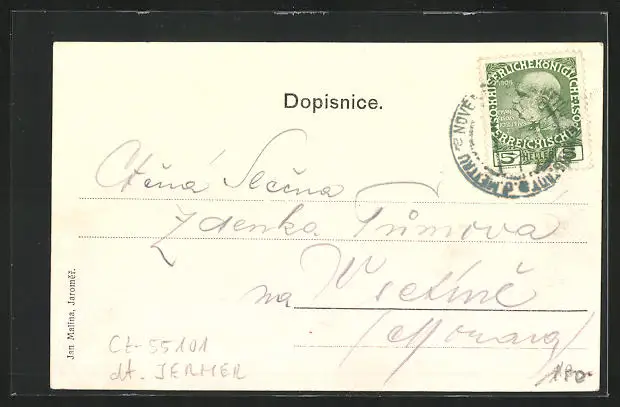 Dopisnice.
KAIS. KÖNIGLICHE ÖSTERREICHISCHE
5 HELLER 5
NOVÉ METUJI
Ctěná Slečna
Zdenka Tůmova
na Vsetíně
(Morava)
Jan Malina, Jaroměř.
Ct-55101
dt. JERMER